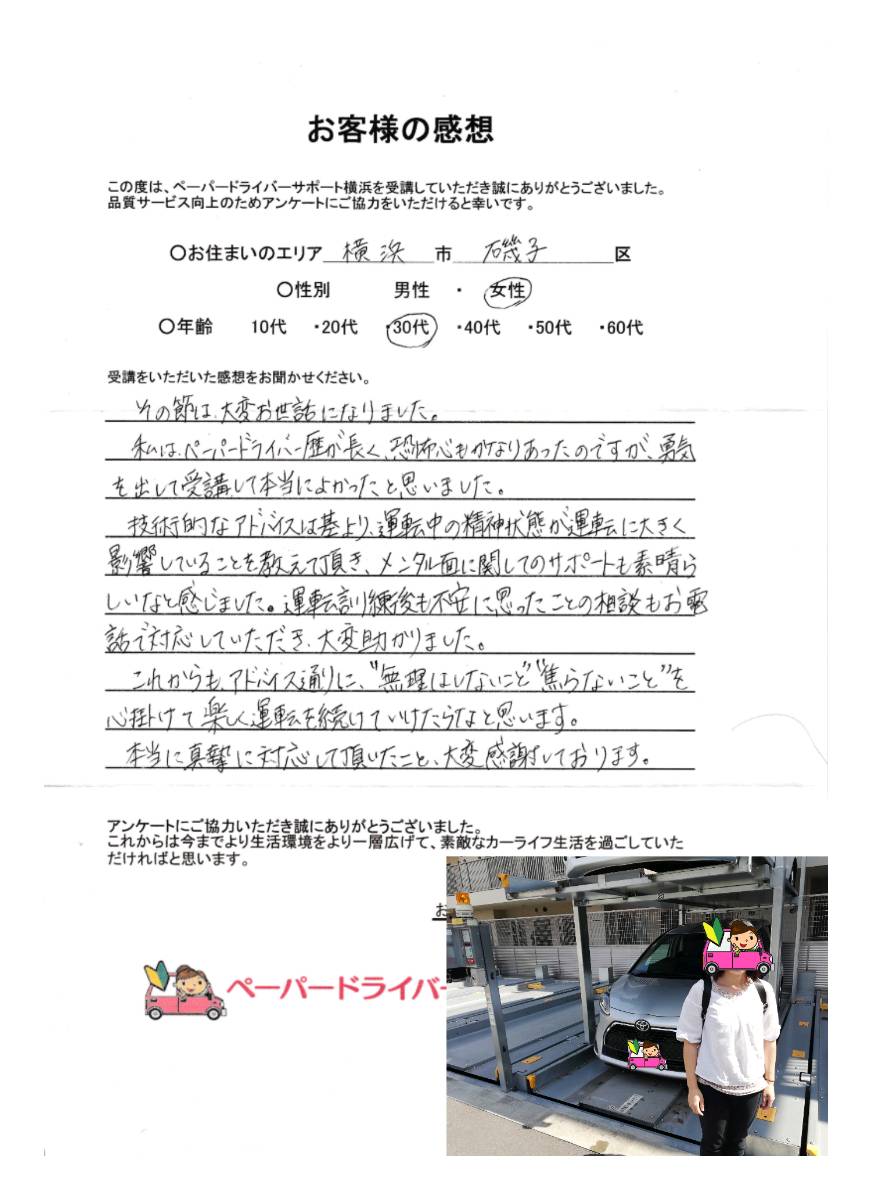 お客様の感想
この度は、ペーパードライバーサポート横浜を受講していただき誠にありがとうございました。
品質サービス向上のためアンケートにご協力をいただけると幸いです。
〇お住まいのエリア 横浜 市 磯子 区
〇性別 男性 ・ 女性
〇年齢 10代 ・20代 ・30代 ・40代 ・50代 ・60代
受講をいただいた感想をお聞かせください。
その節は、大変お世話になりました。
私は、ペーパードライバー歴が長く、恐怖心もかなりあったのですが、勇気
を出して受講して本当によかったと思いました。
技術的なアドバイスは基より、運転中の精神状態が運転に大きく
影響していることを教えて頂き、メンタル面に関してのサポートも素晴ら
しいなと感じました。運転訓練後も不安に思ったことの相談もお電
話で対応していただき、大変助かりました。
これからも、アドバイス通りに、"無理はしないこと" "焦らないこと"を
心掛けて楽しく運転を続けていけたらなと思います。
本当に真摯に対応して頂いたこと、大変感謝しております。
アンケートにご協力いただき誠にありがとうございました。
これからは今までより生活環境をより一層広げて、素敵なカーライフ生活を過ごしていた
だければと思います。
お
ペーパードライバー